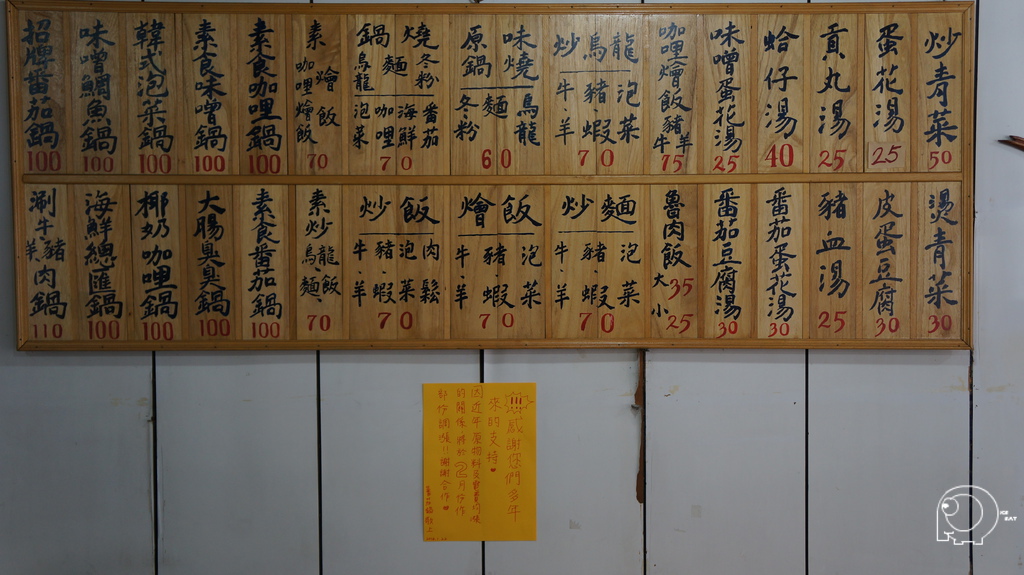 炒青菜 50
蛋花湯 25
貢丸湯 25
蛤仔湯 40
味噌蛋花湯 25
咖哩燴飯 豬 牛 羊 75
炒烏龍 牛、羊 豬、蝦 泡菜 70
味燒 原鍋 烏龍 麵 冬粉 60
燒鍋 冬粉 麵 烏龍 番茄 海鮮 咖哩 泡菜 70
素燴飯 咖哩燴飯 70
素食咖哩鍋 100
素食味噌鍋 100
韓式泡菜鍋 100
味噌鯛魚鍋 100
招牌番茄鍋 100
燙青菜 30
皮蛋豆腐 30
豬血湯 25
番茄蛋花湯 30
番茄豆腐湯 30
魯肉飯 大35 小25
炒麵 牛、羊 豬、蝦 泡菜 70
燴飯 牛、羊 豬、蝦 泡菜 70
炒飯 牛、羊 豬、蝦 泡菜 肉鬆 70
素炒烏龍、麵、飯 70
素食番茄鍋 100
大腸臭臭鍋 100
椰奶咖哩鍋 100
海鮮總匯鍋 100
涮牛豬羊肉鍋 110
感謝您們多年
來的支持
因近年原物料
的關係 將於 月份作
謝謝合作
ICE
EAT